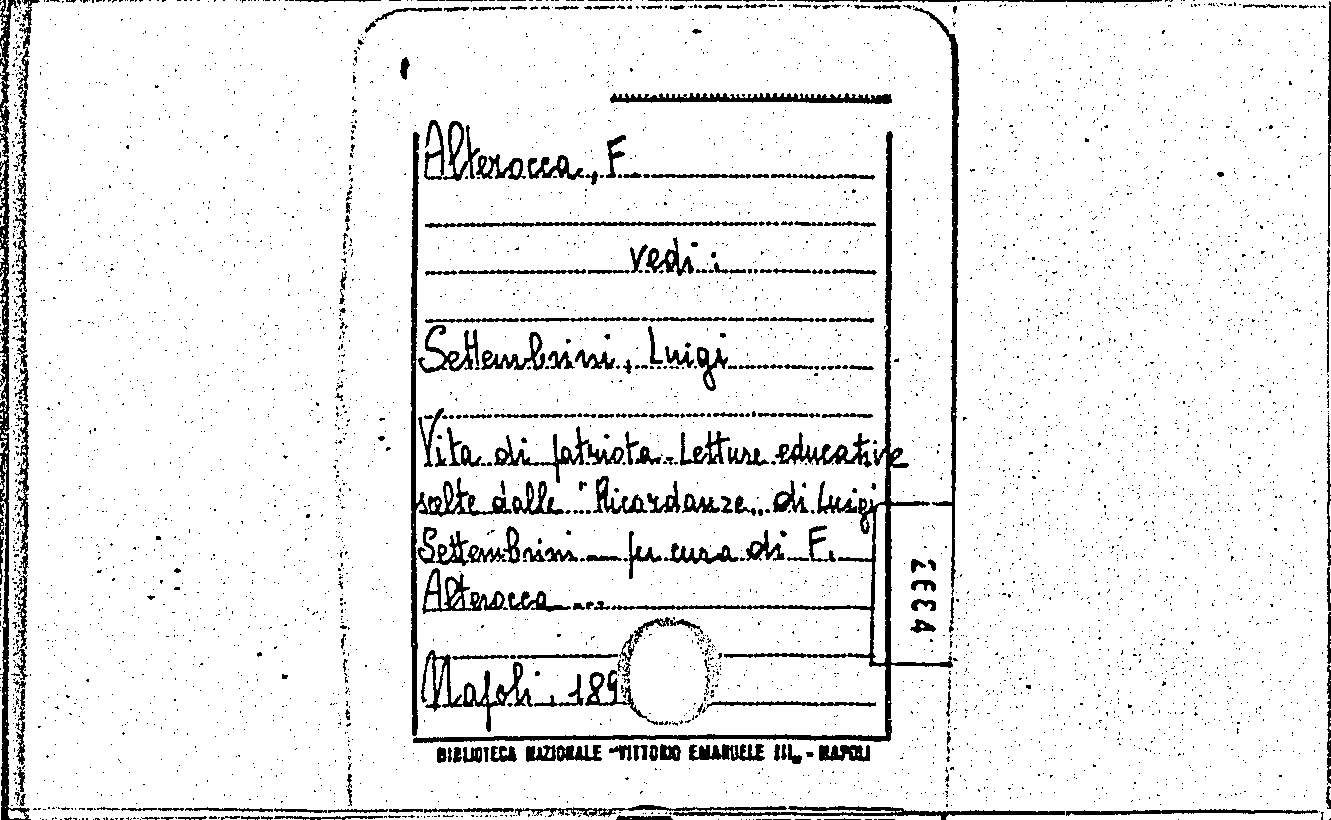 Alterocca, F.
vedi :
Settembrini, Luigi
Vita di patriota. Letture educative
scelte dalle "Ricordanze„ di Luigi
Settembrini __ per cura di F.
Alterocca ...
Napoli, 189
BIBLIOTECA NAZIONALE "VITTORIO EMANUELE III„ - NAPOLI